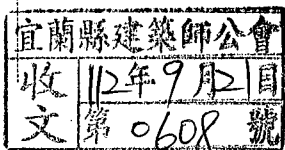 宜蘭縣建築師公會
收文
112年9月21日
第0608號